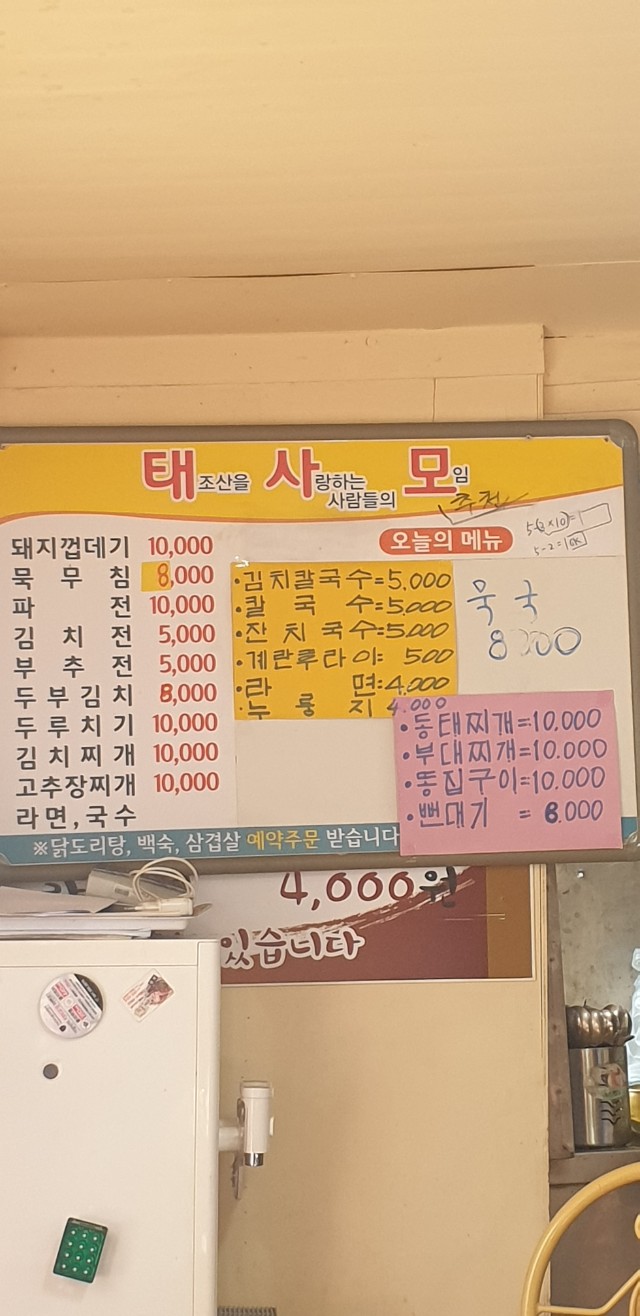 태조산을 사랑하는 사람들의 모임
추천
돼지껍데기 10,000
묵무침 8,000
파전 10,000
김치전 5,000
부추전 5,000
두부김치 8,000
두루치기 10,000
김치찌개 10,000
고추장찌개 10,000
라면,국수
※닭도리탕, 백숙, 삼겹살 예약주문 받습니다
오늘의 메뉴
•김치칼국수=5.000
•칼국수=5,000
•잔치국수=5,000
•계란후라이= 500
•라면=4.000
•누룽지 4.000
묵국
8000
•동태찌개=10.000
•부대찌개=10.000
•똥집구이=10.000
•뻔대기 = 6.000
4,000원
있습니다